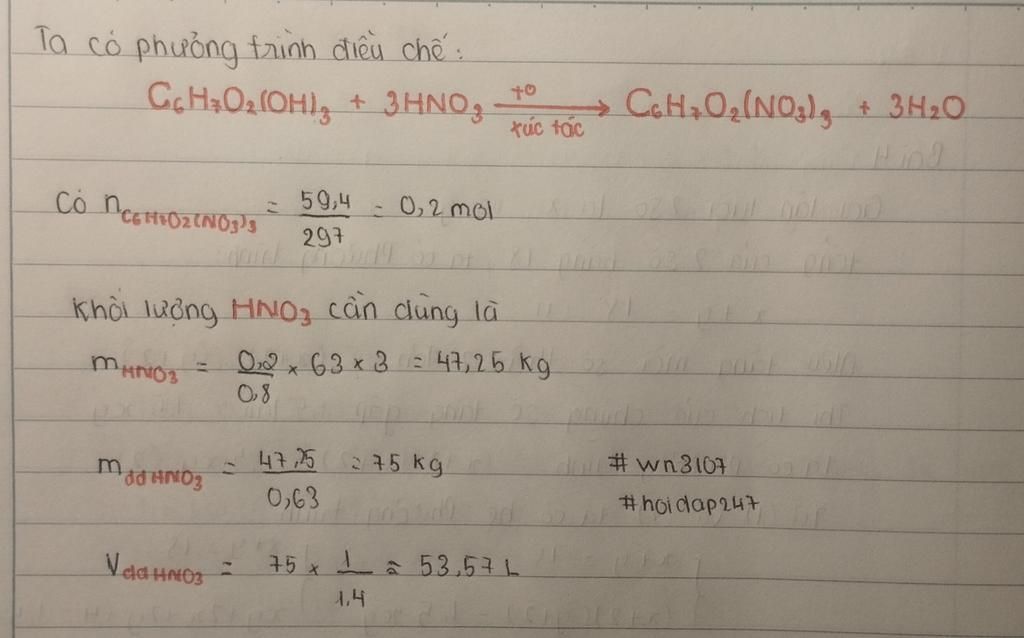 Ta có phương trình điều chế:
C6H7O2(OH)3 + 3HNO3 →(t° xúc tác) C6H7O2(NO3)3 + 3H2O
Có nC6H7O2(NO3)3 = 59,4/297 = 0,2 mol
Khối lượng HNO3 cần dùng là
mHNO3 = 0,2/0,8 × 63 × 3 = 47,25 kg
mddHNO3 = 47,25/0,63 = 75 kg #wn3107
#hoidap247
VddHNO3 = 75 × 1/1,4 ≈ 53,57 L